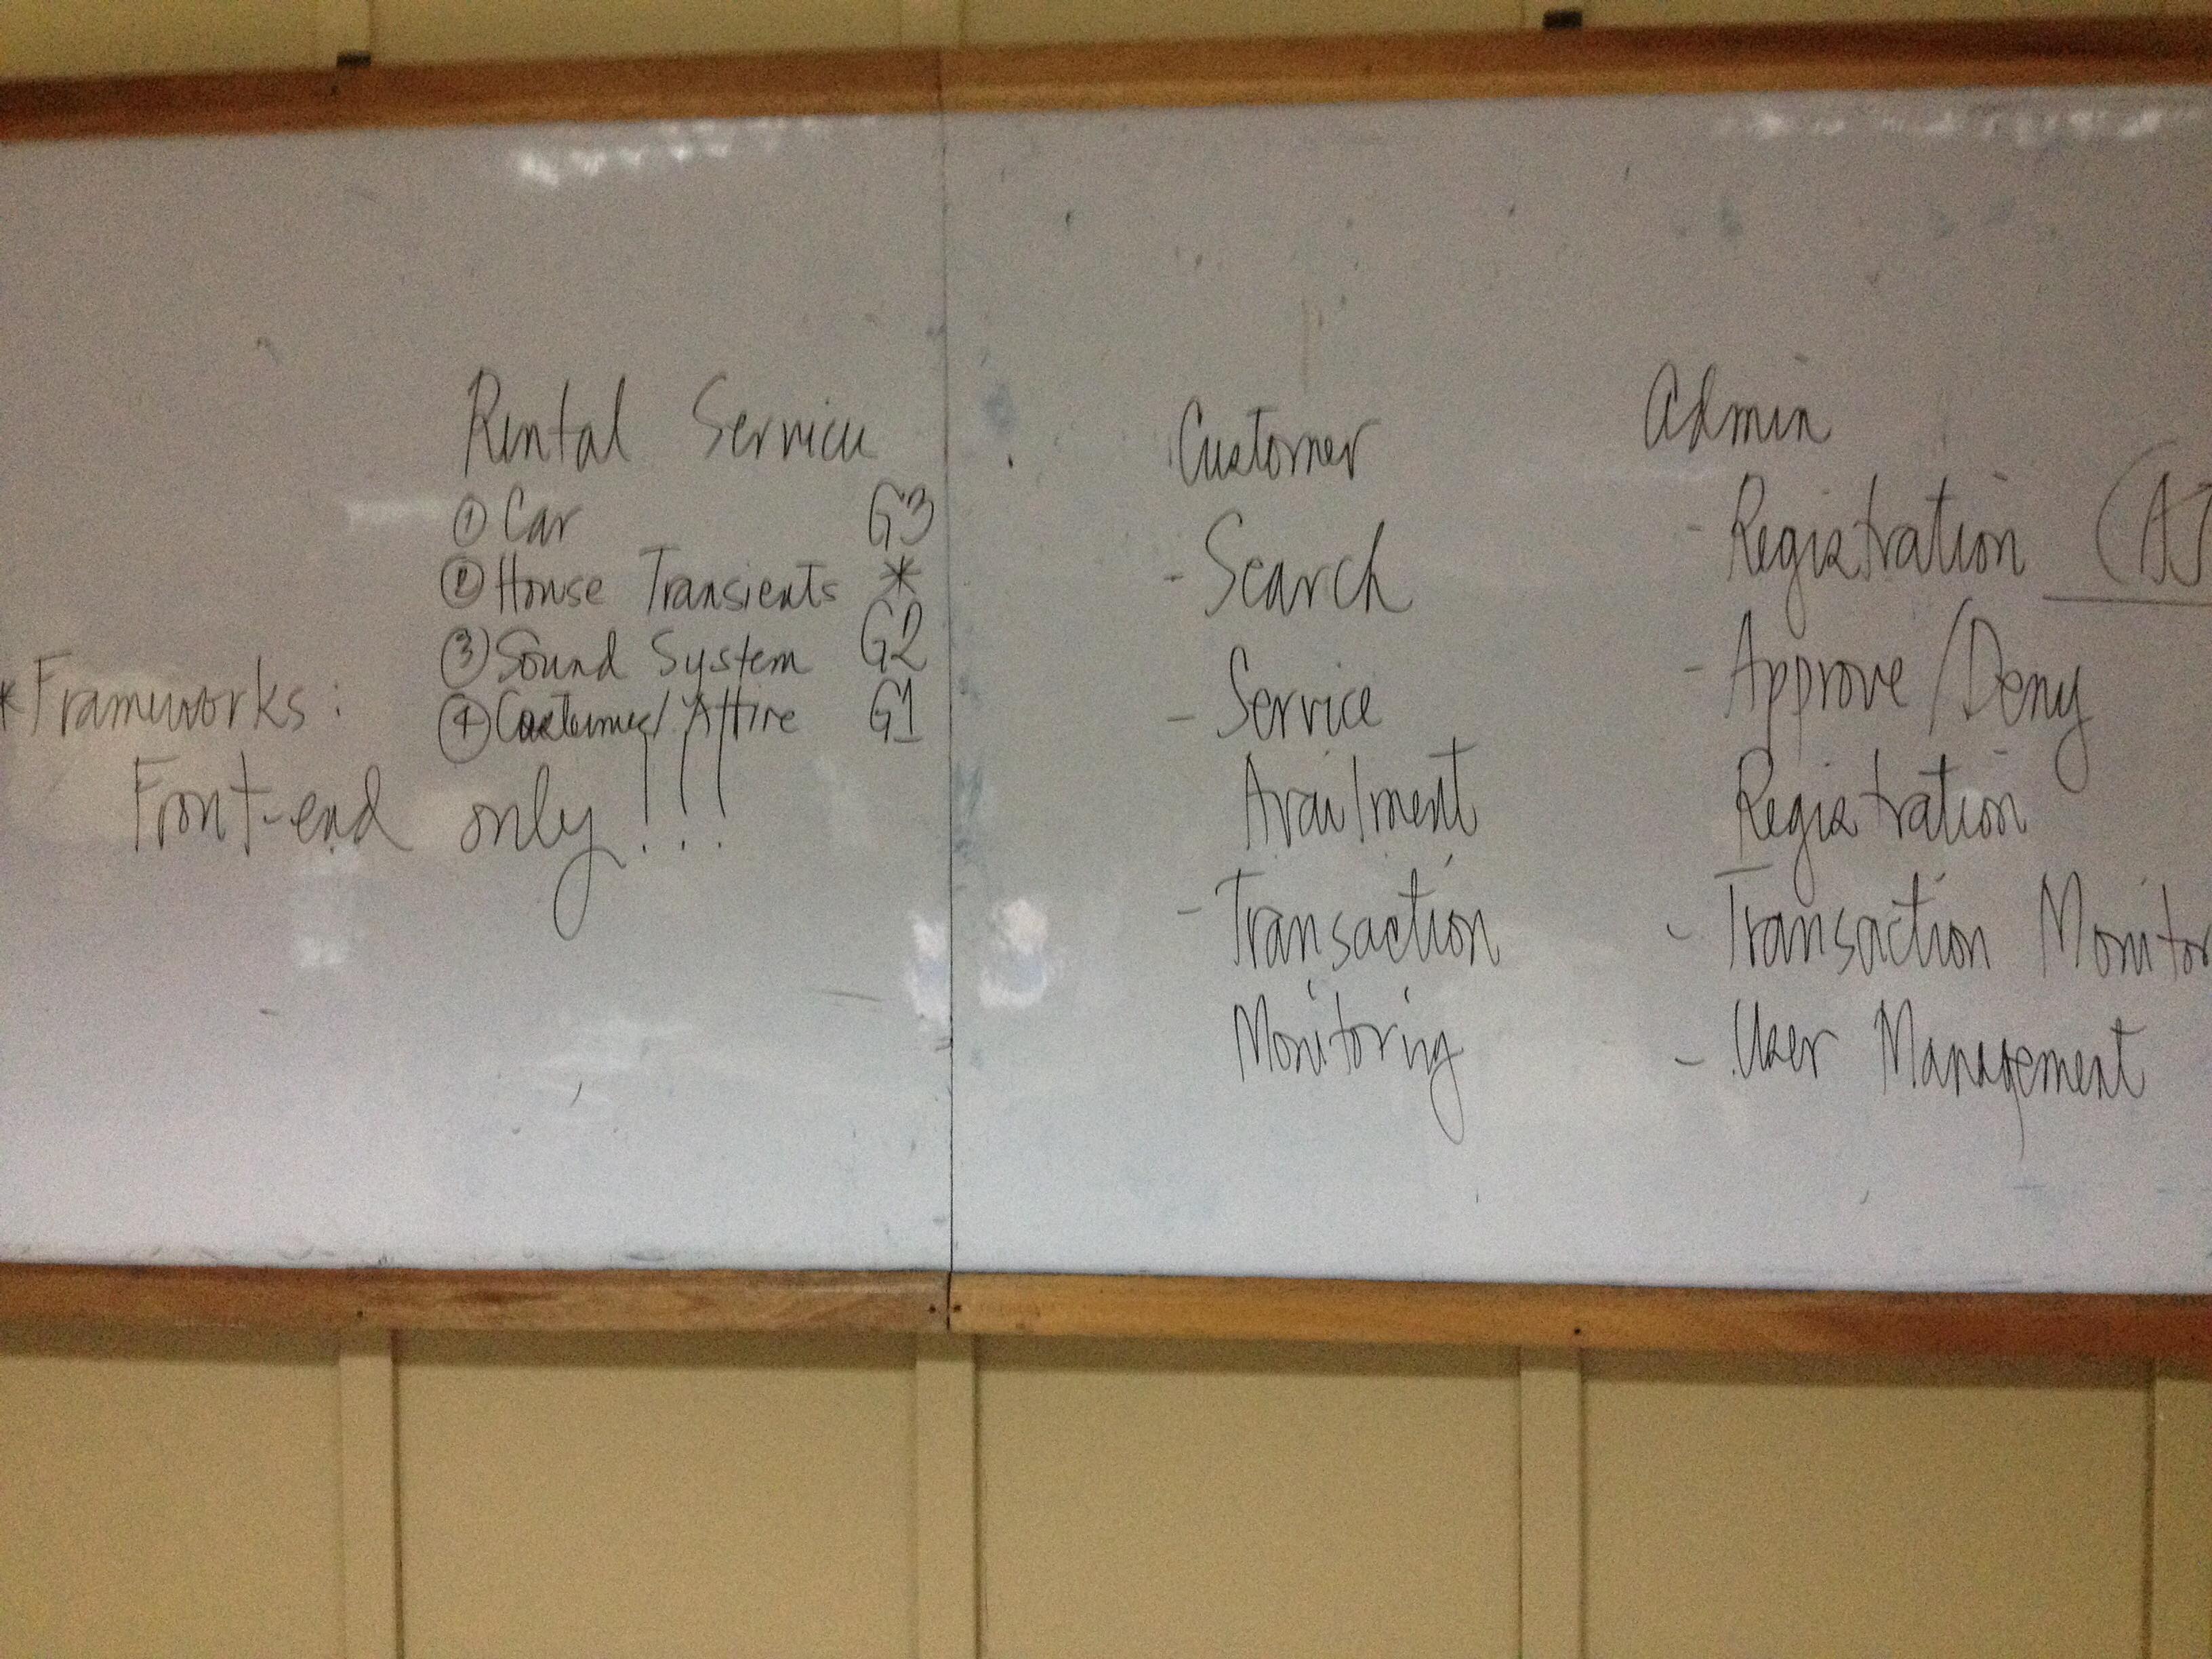 Rental Service
① Car G3
② House Transients *
③ Sound System G2
④ Costumes/Attire G1
* Frameworks:
Front-end only!!!
Customer
- Search
- Service
Availment
- Transaction
Monitoring
Admin
- Registration (AJ
- Approve/Deny
Registration
- Transaction Monitor
- User Management